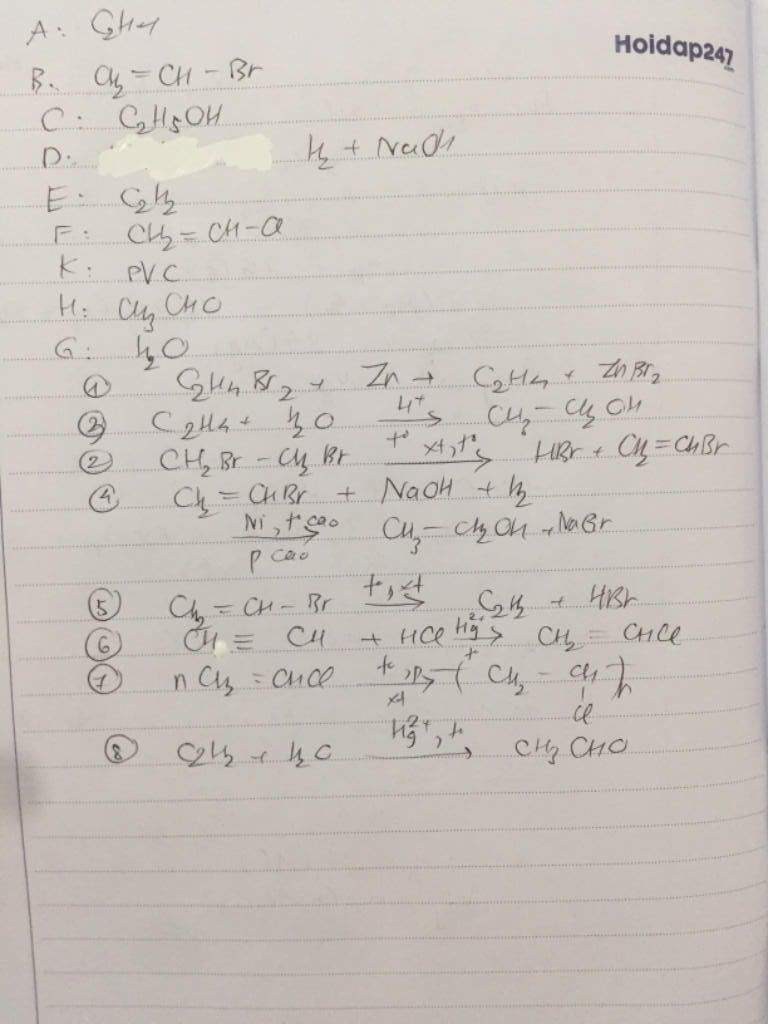 Hoidap247
A: C2H4
B. CH2 = CH - Br
C: C2H5OH
D. H2 + NaOH
E: C2H2
F: CH2 = CH-Cl
K: PVC
H: CH3 CHO
G: H2O
① C2H4 Br2 + Zn → C2H4 + ZnBr2
③ C2H4 + H2O H+ t° → CH3 - CH2 OH
② CH2Br - CH2 Br xt, t° → HBr + CH2 = CHBr
④ CH2 = CHBr + NaOH + H2
Ni, t° cao p cao → CH3 - CH2OH + NaBr
⑤ CH2 = CH - Br t°, xt → C2H2 + HBr
⑥ CH ≡ CH + HCl Hg2+ t° → CH2 = CHCl
⑦ n CH2 = CHCl t°, p xt → ( CH2 - CH )n
Cl
⑧ C2H2 + H2O Hg2+, t° → CH3 CHO